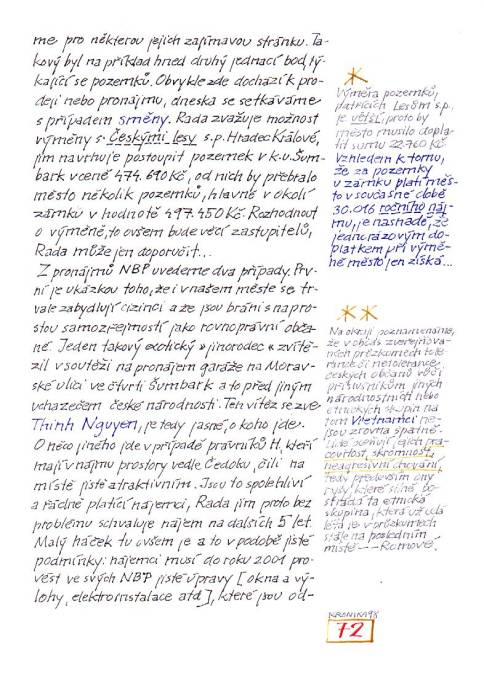 me pro některou jejich zajímavou stránku. Ta-
kový byl na příklad hned druhý jednací bod, tý-
kající se pozemků. Obvykle zde dochází k pro-
deji nebo pronájmu, dneska se setkáváme
s případem směny. Rada zvažuje možnost
výměny s Českými lesy s.p. Hradec Králové,
jim navrhuje postoupit pozemek v k.ú. Šum-
bark v ceně 474.690 Kč, od nich by přebralo
město několik pozemků, hlavně v okolí
zámku v hodnotě 497.450 Kč. Rozhodnout
o výměně, to ovšem bude věcí zastupitelů,
Rada může jen doporučit...
Z pronájmů NBP uvedeme dva případy. Prv-
ní je ukázkou toho, že i v našem městě se tr-
vale zabydlují cizinci a že jsou bráni s napro-
stou samozřejmostí jako rovnoprávní obča-
né. Jeden takový exotický »jinorodec« zvítě-
zil v soutěži na pronájem garáže na Morav-
ské ulici ve čtvrti Šumbark a to před jiným
uchazečem české národnosti. Ten vítěz se zve
Thinh Nguyen, je tedy jasné, o koho jde.
O něco jiného jde v případě právníků H, kteří
mají v nájmu prostory vedle Čedoku, čili na
místě jistě atraktivním. Jsou to spolehliví
a řádně platící nájemci, Rada jim proto bez
problému schvaluje nájem na dalších 5 let.
Malý háček tu ovšem je a to v podobě jisté
podmínky: nájemci musí do roku 2001 pro-
vést ve svých NBP jisté úpravy [okna a vý-
lohy, elektroinstalace atd], které jsou od-
*
Výměra pozemků,
patřících Lesům s.p.,
je větší, proto by
město muselo dopla-
tit sumu 22.760 Kč.
Vzhledem k tomu,
že za pozemky
u zámku platí měs-
to v současné době
30.016 ročního náj-
mu, je nasnadě, že
jednorázovým do-
platkem při výmě-
ně město jen získá...
**
Na okraj poznamenáme,
že v období zveřejňova-
ných průzkumech tole-
rance či netolerance
českých občanů vůči
příslušníkům jiných
národnostních nebo
etnických skupin na
tom Vietnamci ne-
jsou zrovna špatně.
Lidé oceňují jejich pra-
covitost, skromnost,
neagresivní chování,
tedy především ony
rysy, které silně po-
strádá ta etnická
skupina, která už od
léta je v průzkumech
stále na posledním
místě --- Romové.
KRONIKA 98
72